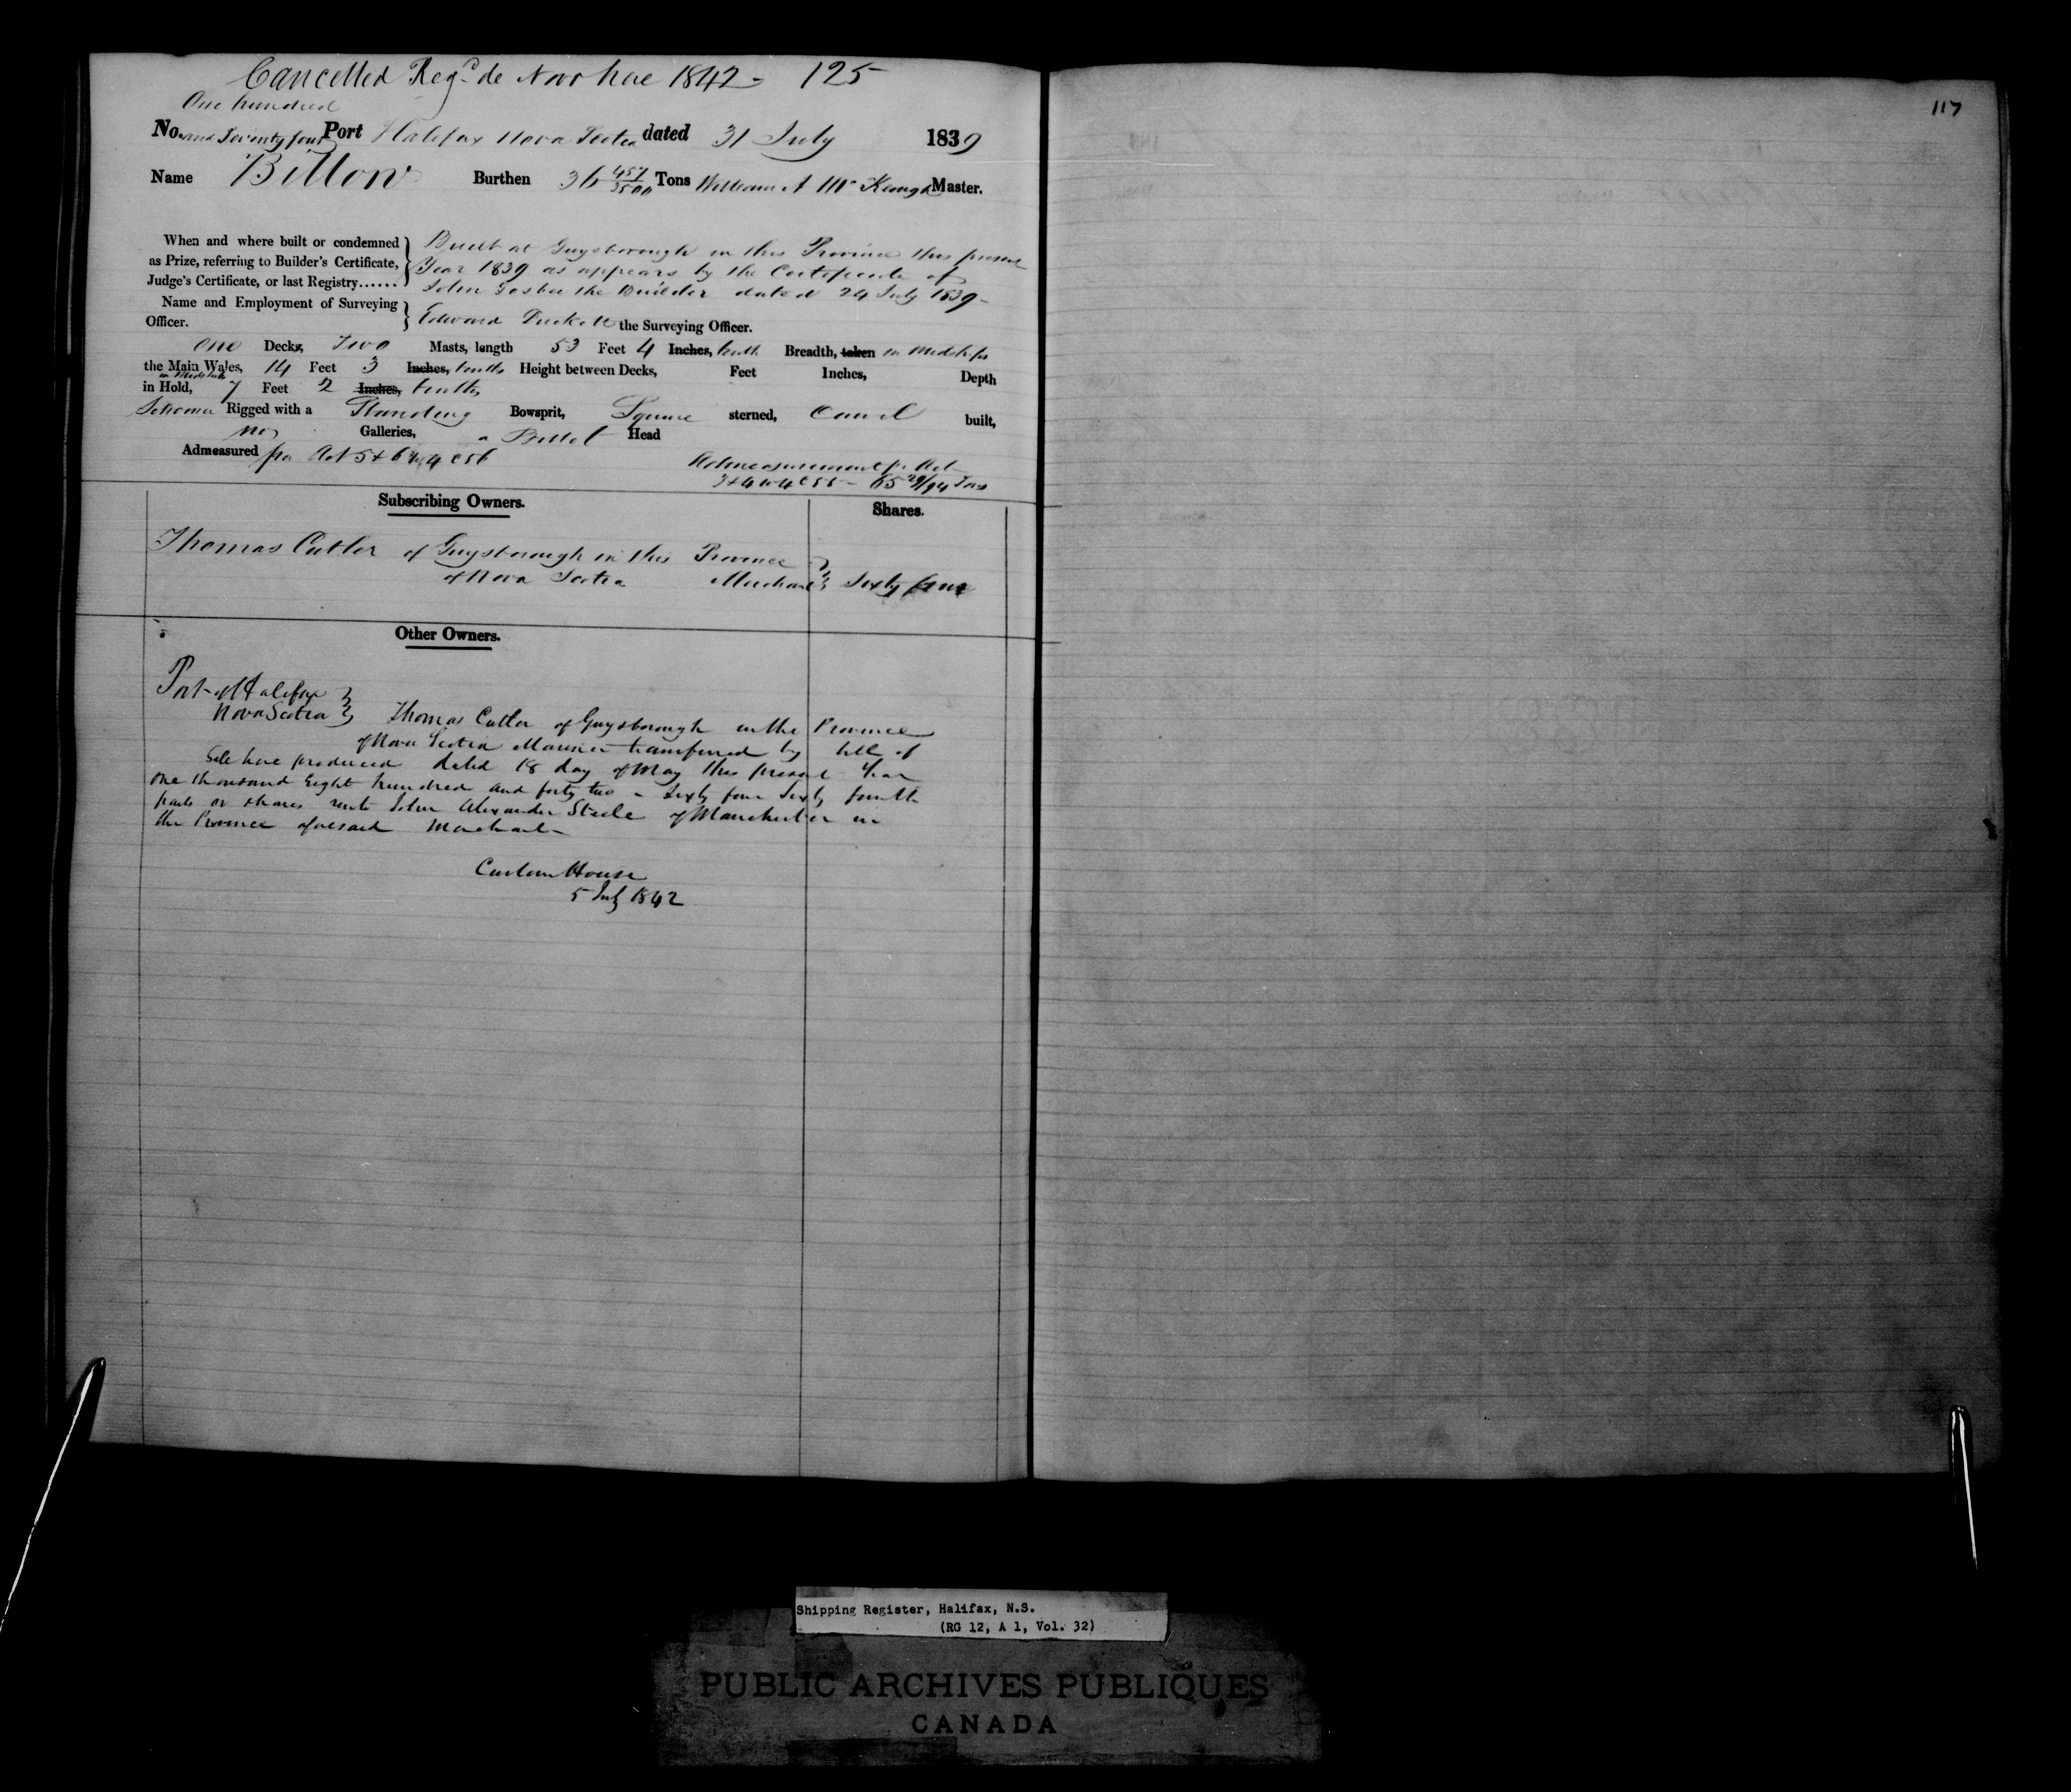 Cancelled Regd de Novo hae 1842 - 125
117
One hundred
No. and Seventy four Port Halifax Nova Scotia dated 31 July 1839
Name Billow Burthen 36 457/3500 Tons William A Mc Keough Master.
When and where built or condemned
as Prize, referring to Builder's Certificate,
Judge's Certificate, or last Registry......
Built at Guysborough in this Province this present
Year 1839 as appears by the Certificate of
John the Builder dated 24 July 1839-
Name and Employment of Surveying
Officer.
Edward the Surveying Officer.
One Decks, Two Masts, length 53 Feet 4 Inches, tenths Breadth, taken in Midships
the Main Wales, 14 Feet 3 Inches, tenths Height between Decks, Feet Inches, Depth
in Midships
in Hold, 7 Feet 2 Inches, tenths
Schooner Rigged with a Standing Bowsprit, Square sterned, Carvel built,
no Galleries, a Billet Head
Admeasured per Act 5 & 6 W 4 c 56
Admeasurement pr Act
3 & 4 W 4 c 55 - 65 29/94 Tons
Subscribing Owners. Shares.
Thomas Cutler of Guysborough in this Province
of Nova Scotia Merchant Sixty four
Other Owners.
Port of Halifax
Nova Scotia Thomas Cutler of Guysborough in the Province
of Nova Scotia transferred by bill of
Sale here produced dated 18 day of May this present Year
One thousand Eight hundred and forty two - Sixty four Sixty fourth
parts or shares unto John Alexander Steele of Manchester in
the Province aforesaid Merchant-
Custom House
5 July 1842
Shipping Register, Halifax, N.S.
(RG 12, A 1, Vol. 32)
PUBLIC ARCHIVES PUBLIQUES
CANADA